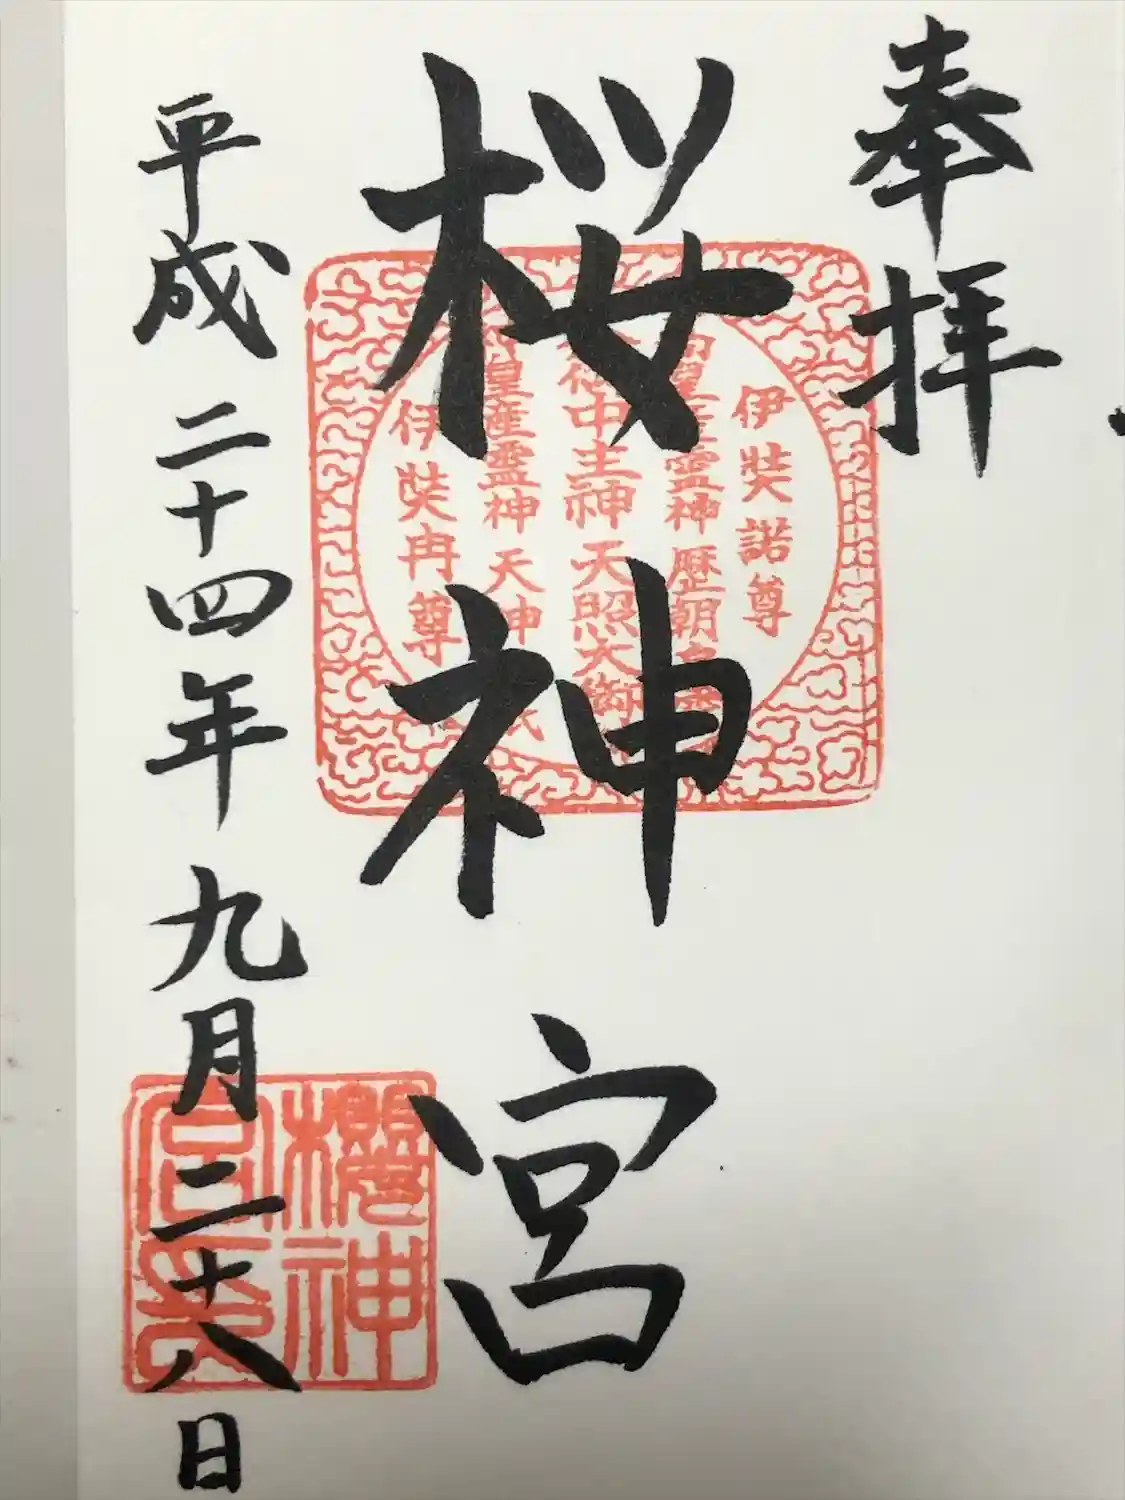 奉拝
桜神宮
伊奘諾尊
皇産霊神 歴朝
中主神 天照大御
皇産霊神 天神
伊奘冉尊
平成二十四年九月二十八日
櫻神
宮印